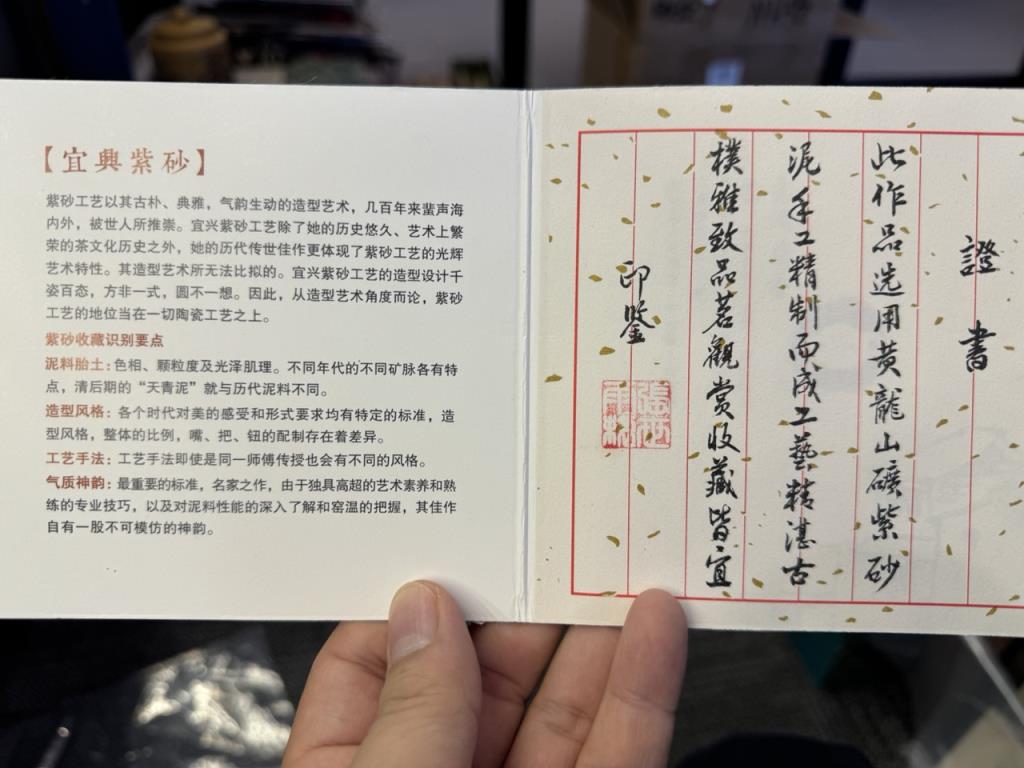 【宜興紫砂】
紫砂工艺以其古朴、典雅，气韵生动的造型艺术，几百年来蜚声海
内外，被世人所推崇。宜兴紫砂工艺除了她的历史悠久、艺术上繁
荣的茶文化历史之外，她的历代传世佳作更体现了紫砂工艺的光辉
艺术特性。其造型艺术所无法比拟的。宜兴紫砂工艺的造型设计千
姿百态，方非一式，圆不一想。因此，从造型艺术角度而论，紫砂
工艺的地位当在一切陶瓷工艺之上。
紫砂收藏识别要点
泥料胎土：色相、颗粒度及光泽肌理。不同年代的不同矿脉各有特
点，清后期的“天青泥”就与历代泥料不同。
造型风格：各个时代对美的感受和形式要求均有特定的标准，造
型风格，整体的比例，嘴、把、钮的配制存在着差异。
工艺手法：工艺手法即使是同一师傅传授也会有不同的风格。
气质神韵：最重要的标准，名家之作，由于独具高超的艺术素养和熟
练的专业技巧，以及对泥料性能的深入了解和窑温的把握，其佳作
自有一股不可模仿的神韵。
證書
此作品选用黄龍山礦紫砂
泥手工精制而成工藝精湛古
樸雅致品茗觀赏收藏皆宜
印鑒